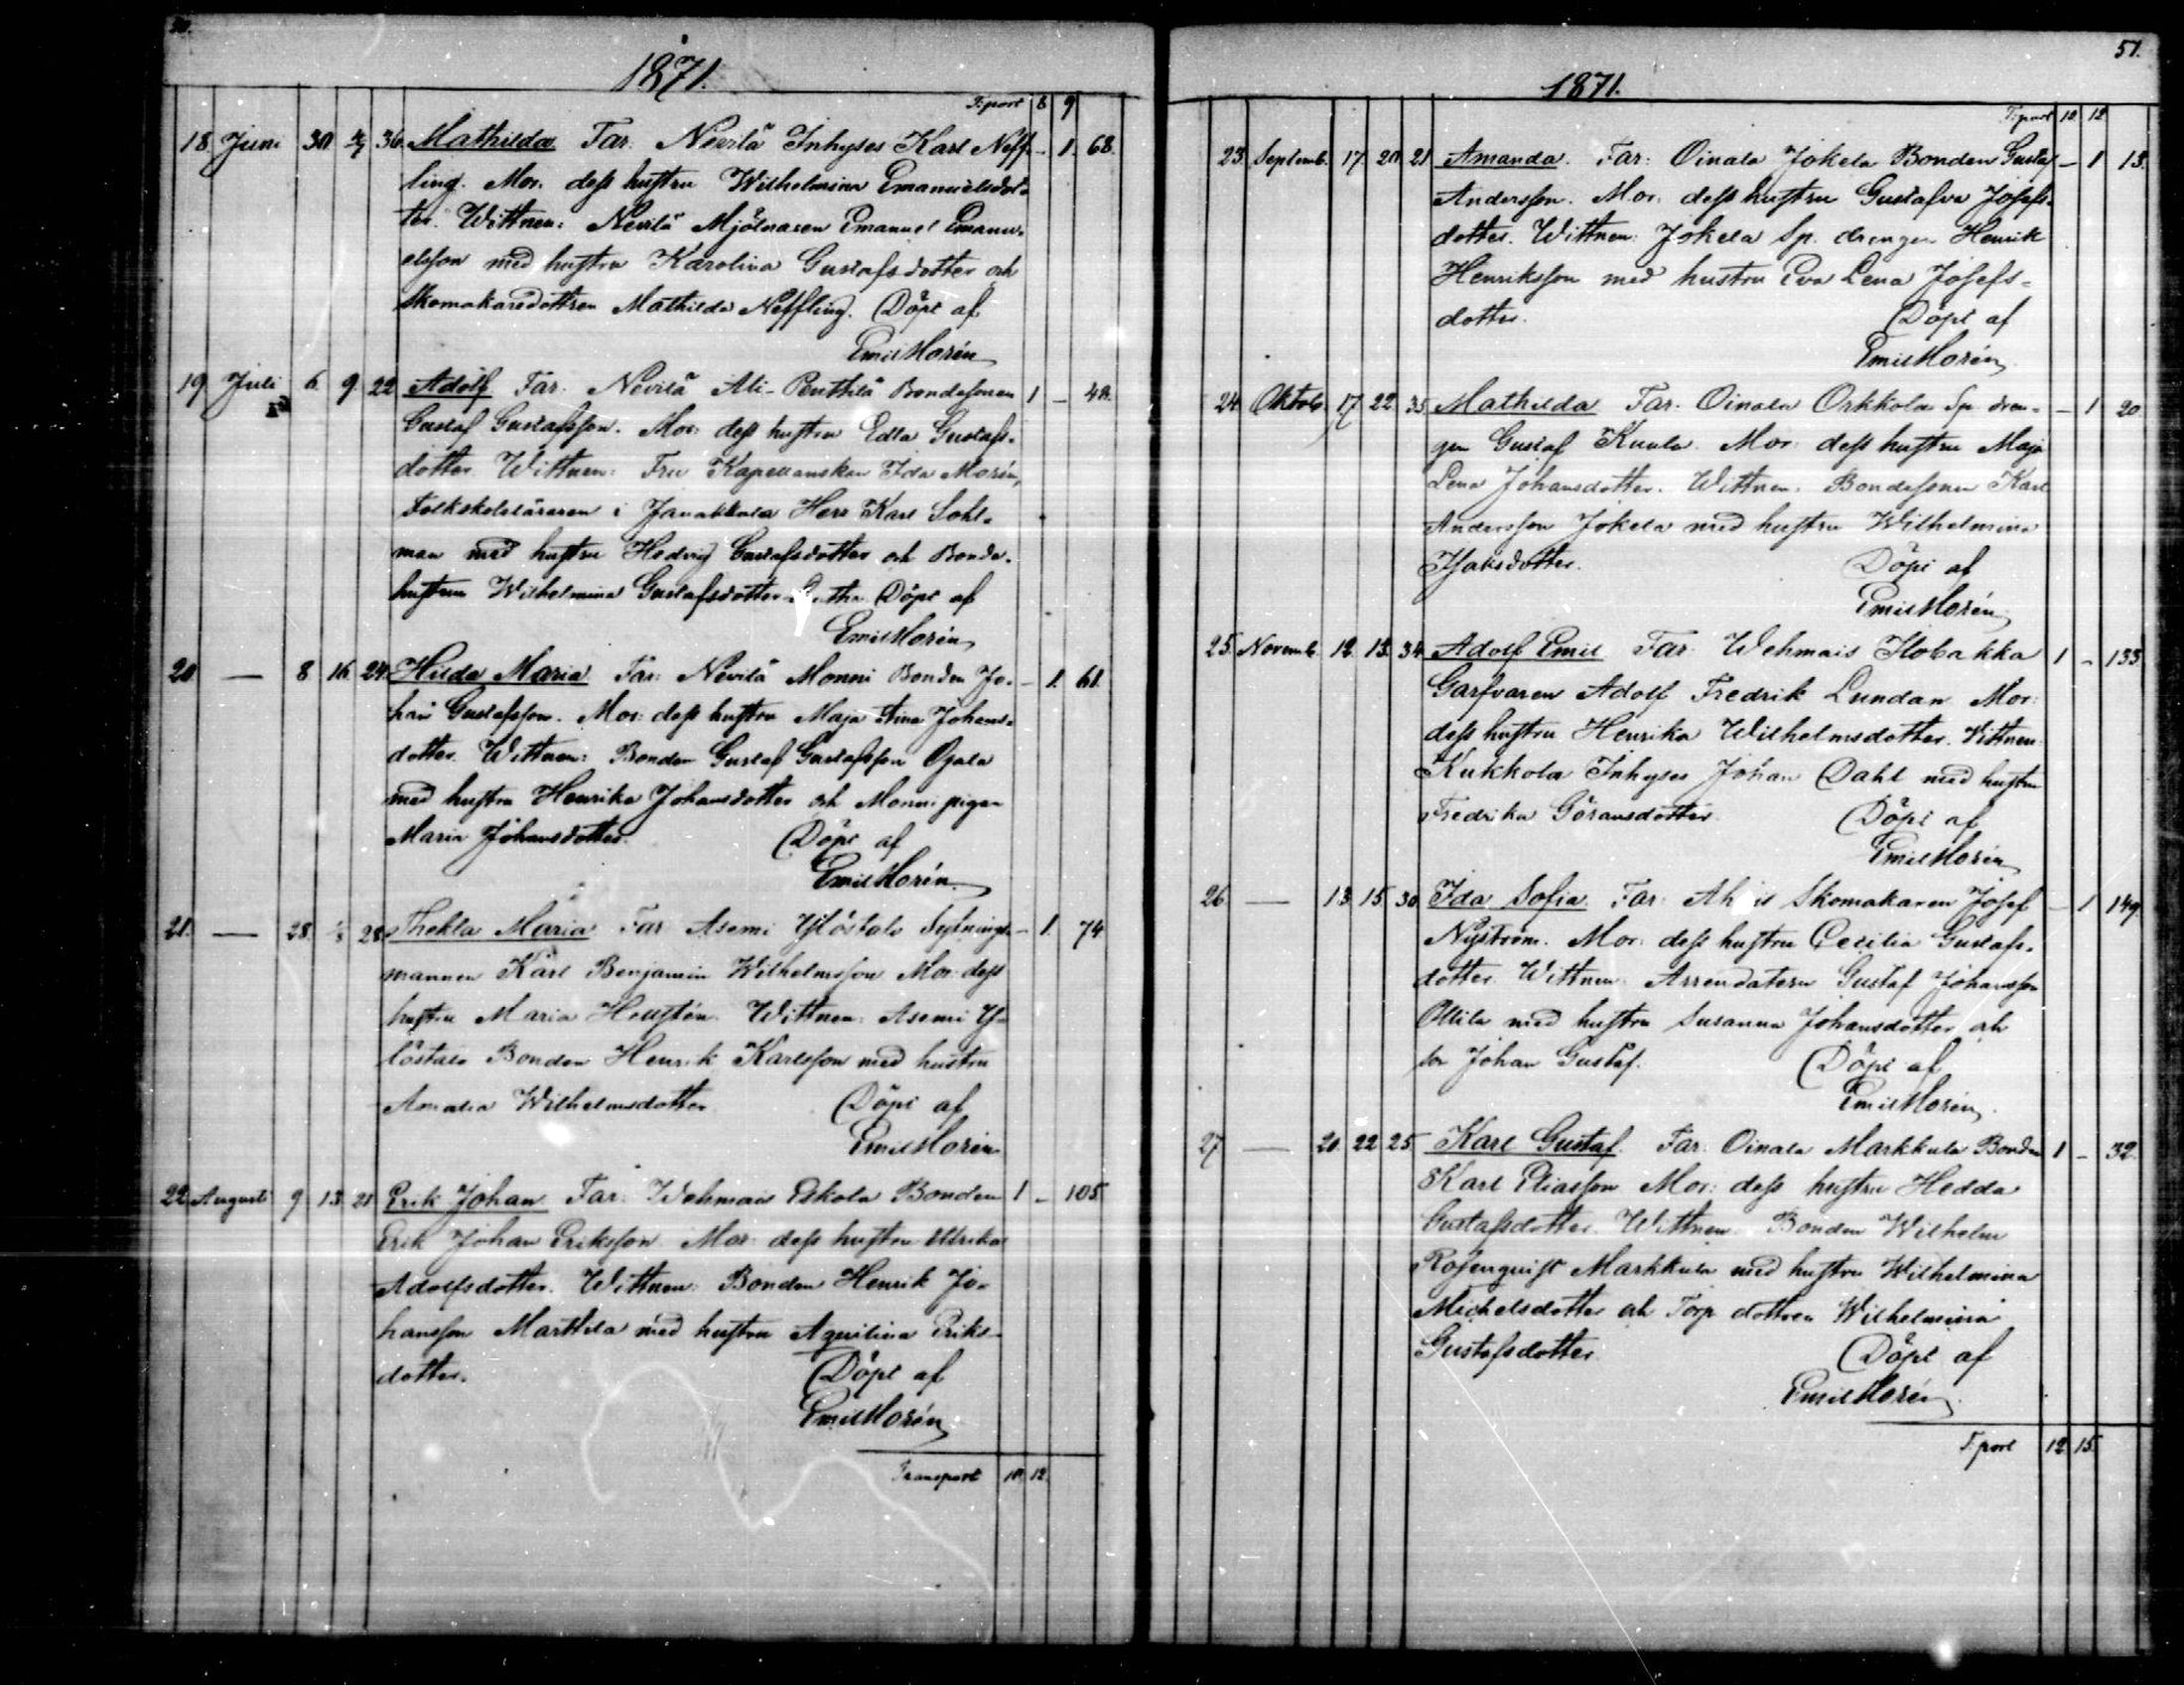 1871.
T:port 8 9
18 Juni 30 2/7 36. Mathilda Far: Nevilä Inhyses Karl Neff- – 1. 68.
ling. Mor: dess hustru Wilhelmina Emanuelsdot-
ter. Wittnen: Nevilä Mjölnaren Emanuel Emanu-
elsson med hustru Karolina Gustafsdotter och
Skomakaredottren Mathilda Neffling. Döpt af
Emil Morén
19 Juli 6. 9. 22 Adolf Far: Nevilä Ali-Penttilä Bondesonen 1 – 48.
Gustaf Gustafsson. Mor: dess hustru Edla Gustafs-
dotter. Wittnen: Fru Kapellanskan Ida Morén,
Folkskoleläraren i Janakkala Herr Karl Sohl-
man med hustru Hedvig Gustafsdotter och Bonde-
hustrun Wilhelmina Gustafsdotter Döpt af
Emil Morén
20 — 8 16 24. Hilda Maria Far: Nevilä Monni Bonden Jo- – 1. 61.
han Gustafsson. Mor: dess hustru Maja Stina Johans-
dotter. Wittnen: Bonden Gustaf Gustafsson Ojala
med hustru Henrika Johansdotter och Monni pigan
Maria Johansdotter. Döpt af
Emil Morén
21. — 28. 28. Thekla Maria Far: Asemi Ylöstalo Sytnings- – 1. 74
mannen Karl Benjamin Wilhelmsson Mor: dess
hustru Maria Wittnen: Asemi Y-
löstalo Bonden Henrik Karlsson med hustru
Amalia Wilhelmsdotter Döpt af
Emil Morén
22 Augusti 9 13. 21 Erik Johan Far: Wehmais Eskola Bonden 1 – 105
Erik Johan Eriksson Mor: dess hustru Ulrika
Adolfsdotter. Wittnen: Bonden Henrik Jo-
hansson Marttila med hustru Aqvilina Eriks-
dotter. Döpt af
Emil Morén
Transport 10. 12.
51.
1871.
T:port 10 12
23. Septemb. 17. 20. 21 Amanda. Far: Oinala Jokela Bonden Gustaf – 1 13.
Andersson. Mor: dess hustru Gustafva Josefs-
dotter. Wittnen: Jokela Sp. drengen Henrik
Henriksson med hustru Eva Lena Josefs-
dotter. Döpt af
Emil Morén
24 Oktob. 17 22. 35 Mathilda Far: Oinala Orkkola Sp. dren- – 1 20
gen Gustaf Kuula. Mor: dess hustru Maja
Lena Johansdotter. Wittnen: Bondesonen Karl
Andersson Jokela med hustru Wilhelmina
Isaksdotter. Döpt af
Emil Morén
25. Novemb. 12. 13. 34. Adolf Emil Far: Wehmais Ilobakka 1 – 133.
Garfvaren Adolf Fredrik Lundan Mor:
dess hustru Henrika Wilhelmsdotter. Wittnen:
Kukkola Inhyses Johan Dahl med hustru
Fredrika Göransdotter Döpt af
Emil Morén
26. — 13 15 30 Ida Sofia Far: Skomakaren Josef – 1 149.
Nyström. Mor: dess hustru Cecilia Gustafs-
dotter Wittnen: Arrendatorn Gustaf Johansson
Ollila med hustru Susanna Johansdotter och
son Johan Gustaf. Döpt af
Emil Morén
27 — 20. 22 25 Karl Gustaf. Far: Oinala Markkula Bonden 1 – 32.
Karl Eliasson Mor: dess hustru Hedda
Gustafsdotter. Wittnen: Bonden Wilhelm
Rosenquist Markkula med hustru Wilhelmina
Michelsdotter och Torp. dottren Wilhelmina
Gustafsdotter. Döpt af
Emil Morén
T:port 12 15.